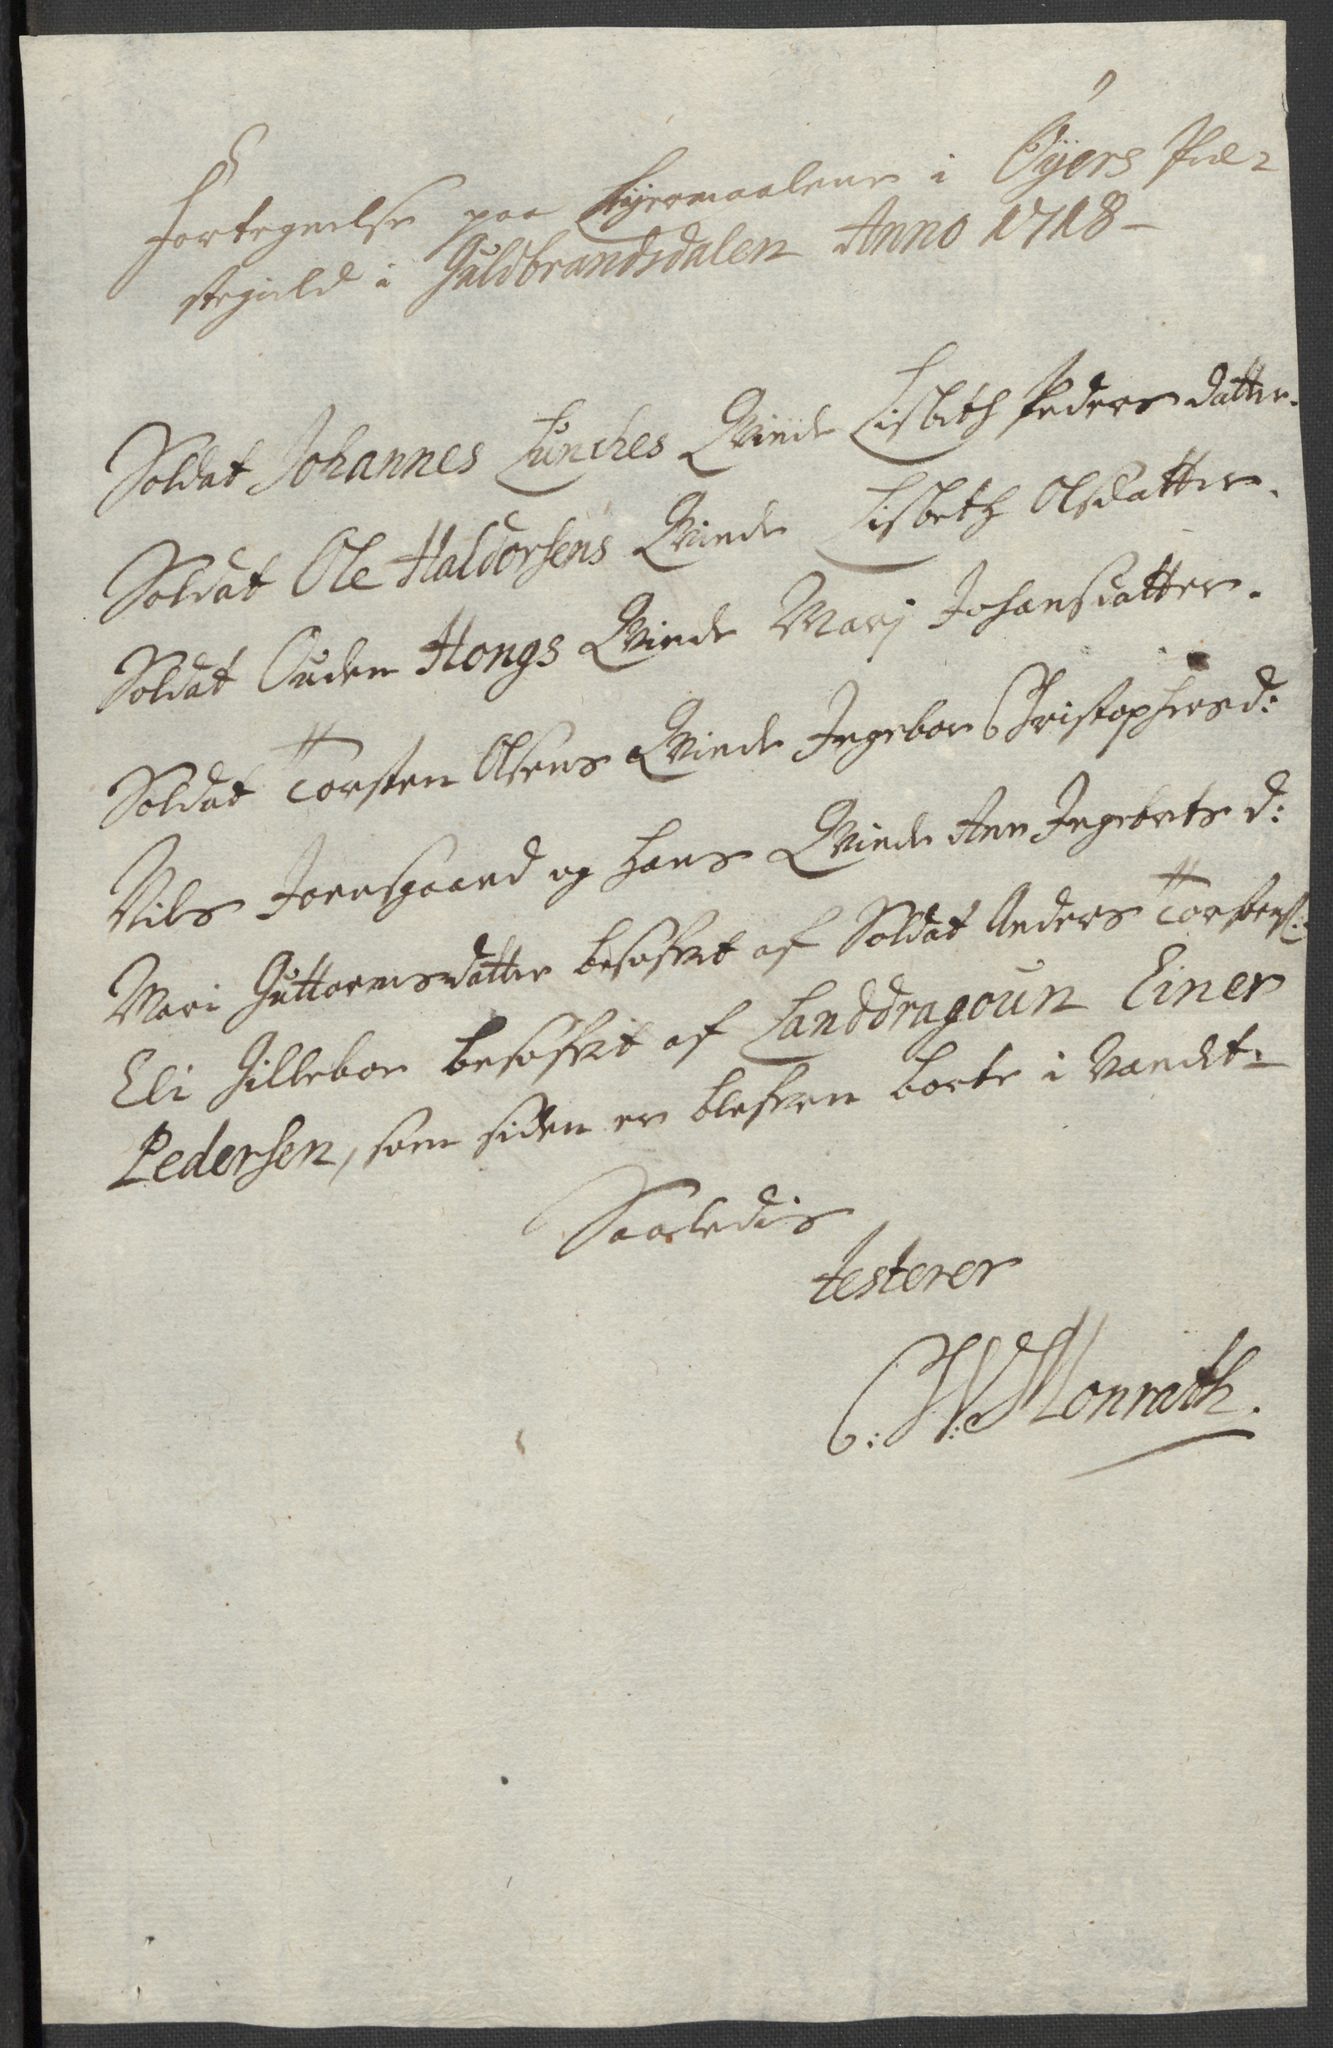 Fortegnelse paa Leyermaalene i Øyers Præ-
stegield i Guldbrandsdalen Anno 1718 -
Soldat Johannes Lunches Qvinde Lisbeth Peders datter.
Soldat Ole Haldorsens Qvinde Lisbeth Olsdatter.
Soldat Ouden Hongs Qvinde Marj Johansdatter.
Soldat Torsten Olsens Qvinde Ingebor Christophersd:
Nils Joensgaard og hans Qvinde Ann Ingebrets d:
Mari Guttormsdatter besofvet af Soldat Anders Torstens:
Eli Gilleboe besofvet af Landdragoun Einer
Pedersen, som siden er blefven borte i Vandet:
Saaledis
testerer
C: W: Monrath.